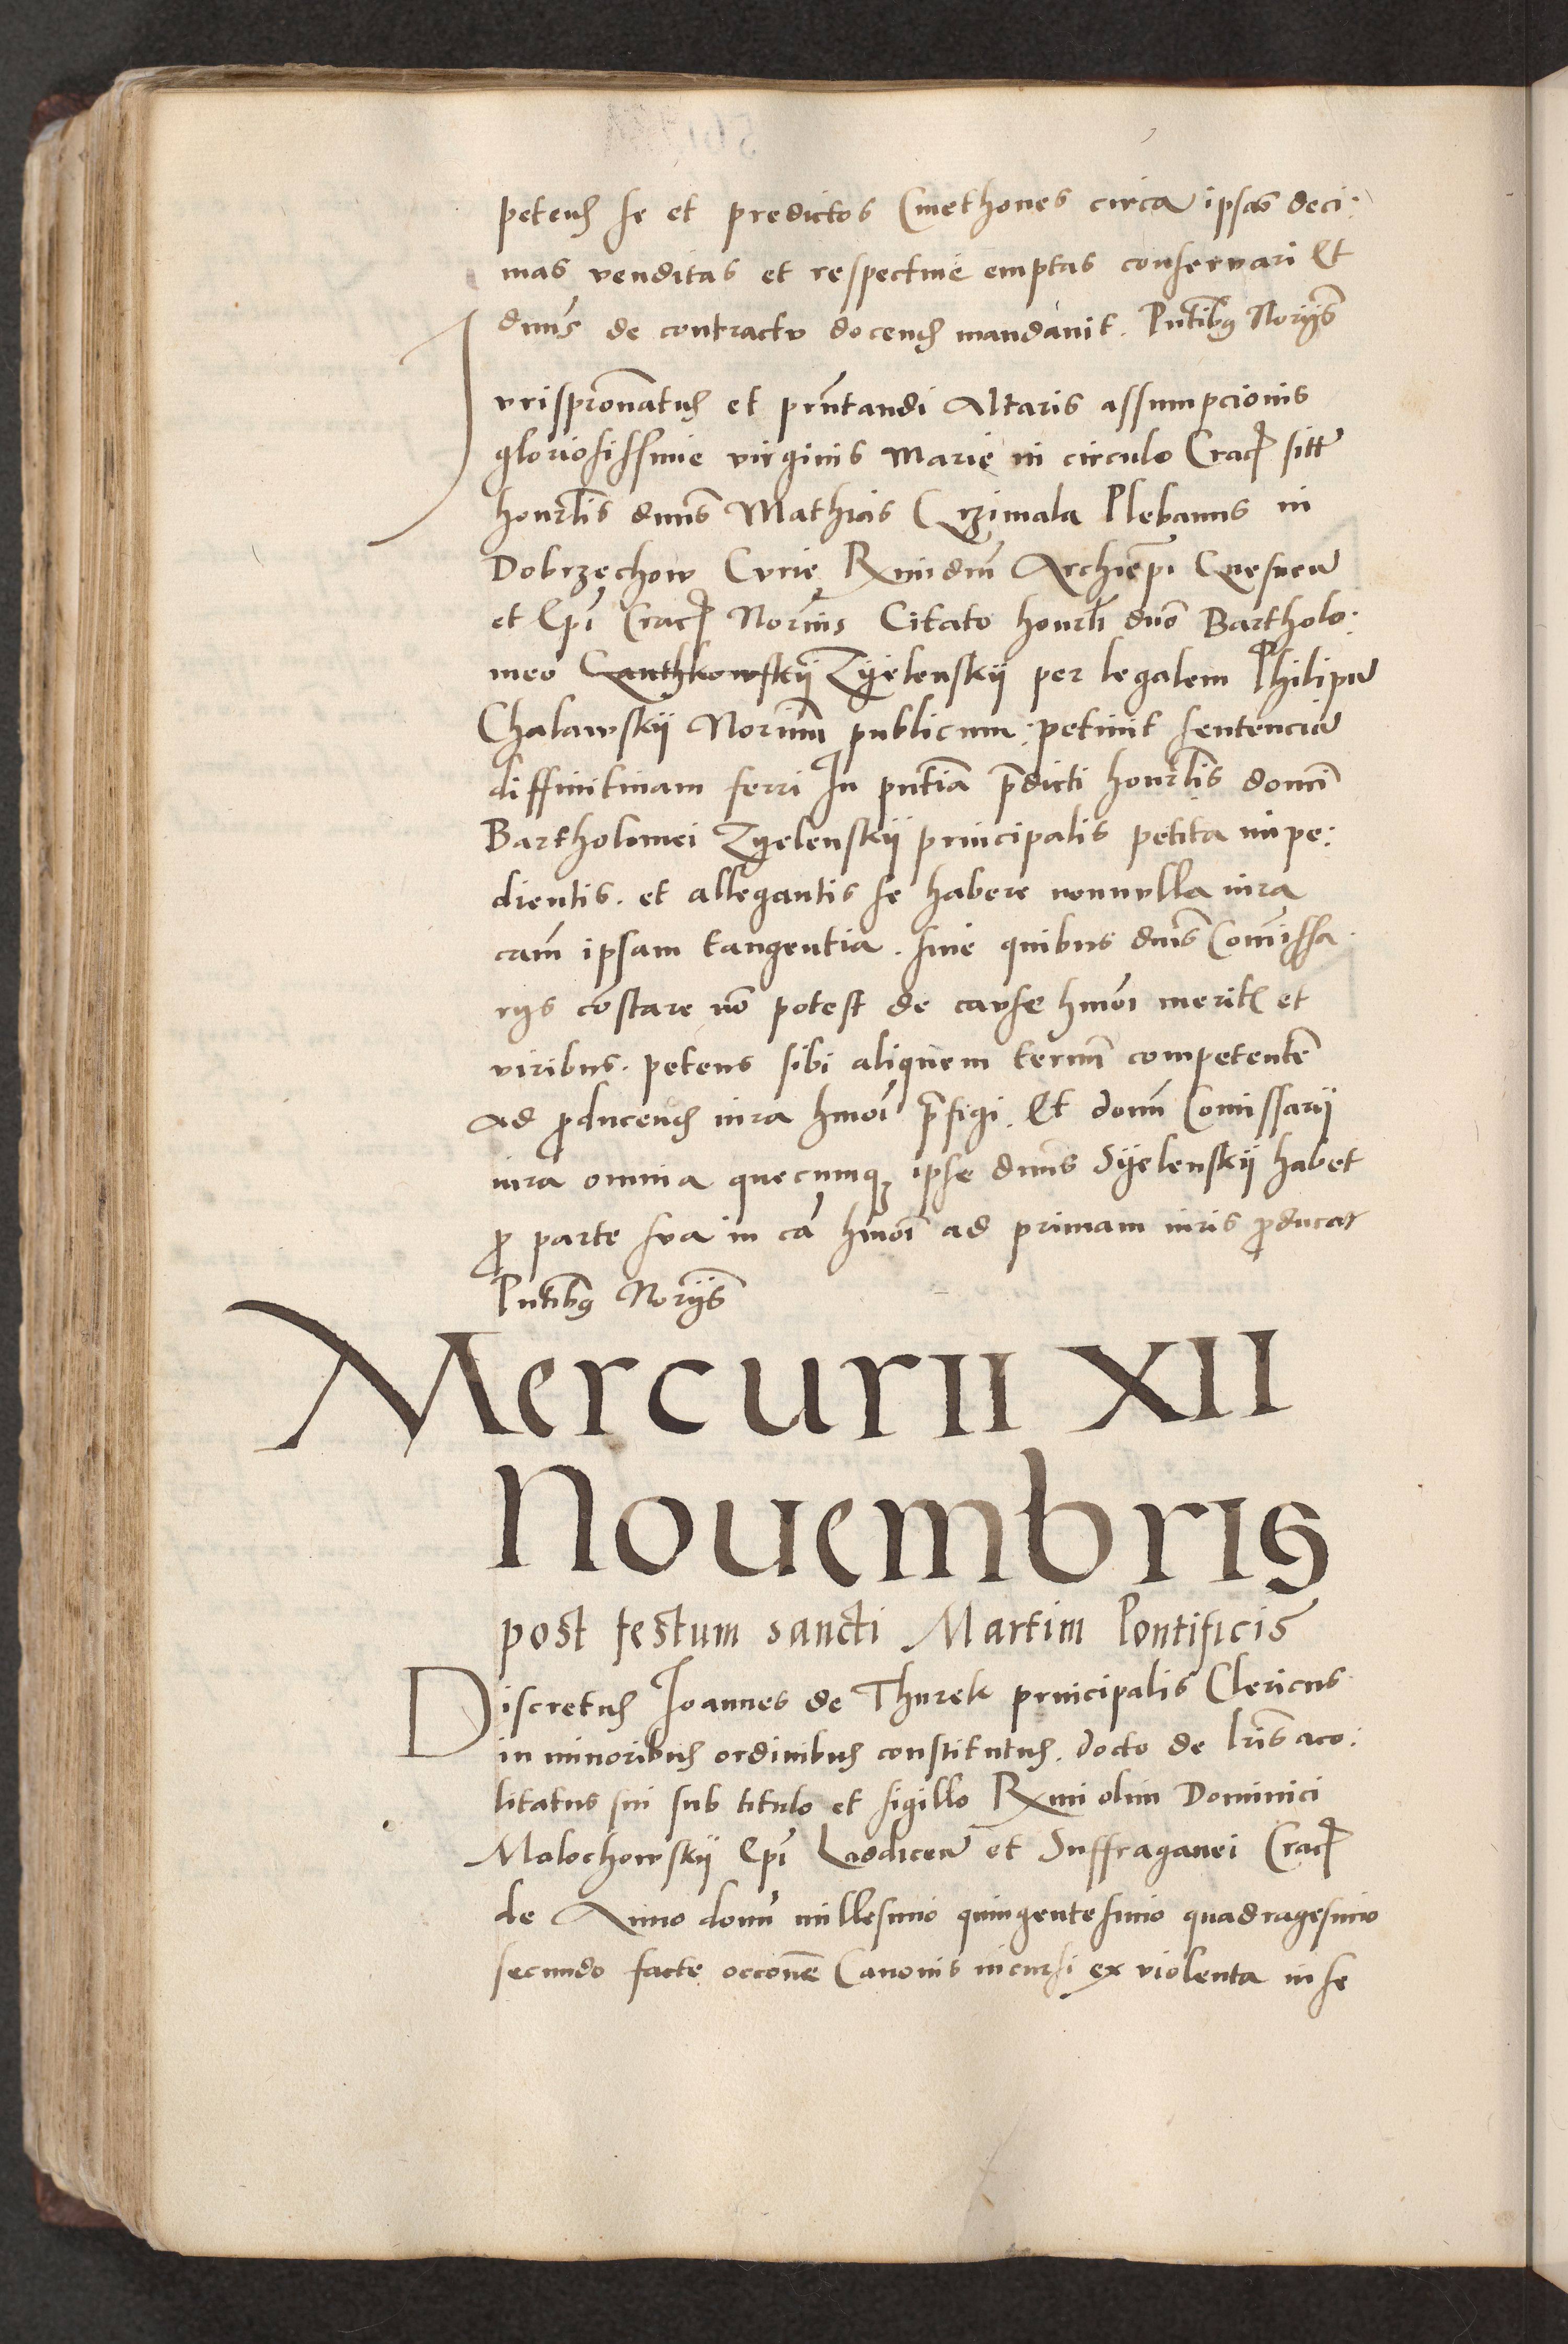 petendꝭ se et predictos Cmethones circa ipsas deci:
mas venditas et respectiue emptas conseruari Et
dnus de contractu docendꝭ mandauit. Pntibꝰ Norijs
Iurispronatus et prntandi Altaris assumpcionis
gloriosissime virginis Marie in circulo Crac sitt
honrlis dnus Mathias Grzimala Plebanus in
Dobrzechow Curie Rmi dni Archiepi Gnesnen
et Epi Crac Norius Citato honrli dno Bartholo:
meo Zyelenskij per legalem Philipu
Chalawskij Norium publicum: petiuit sentencia
diffinitiuam ferri In pntia pdicti honrlis domi
Bartholomei Zyelenskij principalis petita impe:
dientis. et allegantis se habere nonnulla iura
cam ipsam tangentia. sine quibus dnis Comissa
rijs constare no potest de cause hmoi merit et
viribus. petens sibi aliquem termi competente
ad producendꝭ iura hmoi pfigi. Et domi Comissarij
iura omnia quecumqꝫ ipse dnus Syelenskij habet
ꝓ parte sua in ca hmoi ad primam iuris ꝓducat
Pntibꝰ Norijs
Mercurii XII
Nouembris
post festum sancti Martini Pontificis
Discretus Ioannes de Thurek principalis Clericus
in minoribus ordinibus constitutus. docto de lris aco:
litatus sui sub titulo et sigillo Rmi olim Dominici
Malochowskij Epi Laodicen et Suffraganei Crac
de Anno domi millesimo quingentesimo quadragesimo
secundo facte occone Canonis incursi ex violenta in se